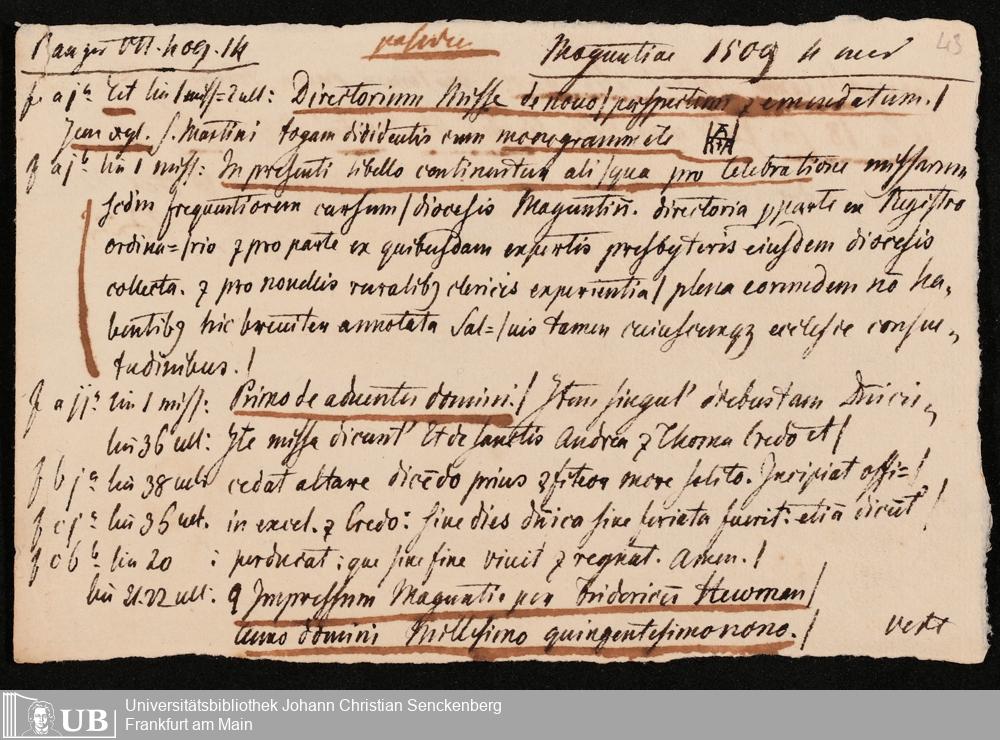 Panzer VII. 409. 14 Maguntiae 1509 4 43
f. a jª Tit lin 1 miss=2 ult: Directorium Misse de nouo/perspectum ⁊ emendatum./
Jcon xyl. S. Martini togam diuidentis cum monogrammate
f a jᵇ lin 1 miss: In presenti libello continentur ali/qua pro celebratione missarum
scdm frequentiorem cursum/diocesis Maguntiñ. directoria p parte ex Registro
ordina=/rio ⁊ pro parte ex quibusdam expertis presbyteris eiusdem diocesis
collecta. ⁊ pro nouellis ruralibꝫ clericis experientia/plena eorundem nō ha,,
bentibꝫ hic breuiter annotata Sal=/uis tamen cuiuscunqꝫ ecclesie consue,,
tudinibus./
f a ijª lin 1 miss: Primo de aduentu domini./ Item singul' diebus tam Dnicis,,
lin 36 ult: Ite missa dicunt' Et de sanctis Andrea ⁊ Thoma Credo et/
f b jª lin 38 ult: cedat altare dicēdo prius ꝯfiteor more solito. Incipiat offi=/
f c jª lin 36 ult. in excel. ⁊ Credo: siue dies dñica siue feriata fuerit: etiā dicūt'/
f c 6ᵇ lin 20 : perducat: que sine fine viuit ⁊ regnat. Amen./
lin 21.22 ult: ¶ Impressum Maguntie per Fridericū Hewman/
Anno domini Millesimo quingentesimonono./ vert
UB Universitätsbibliothek Johann Christian Senckenberg
Frankfurt am Main